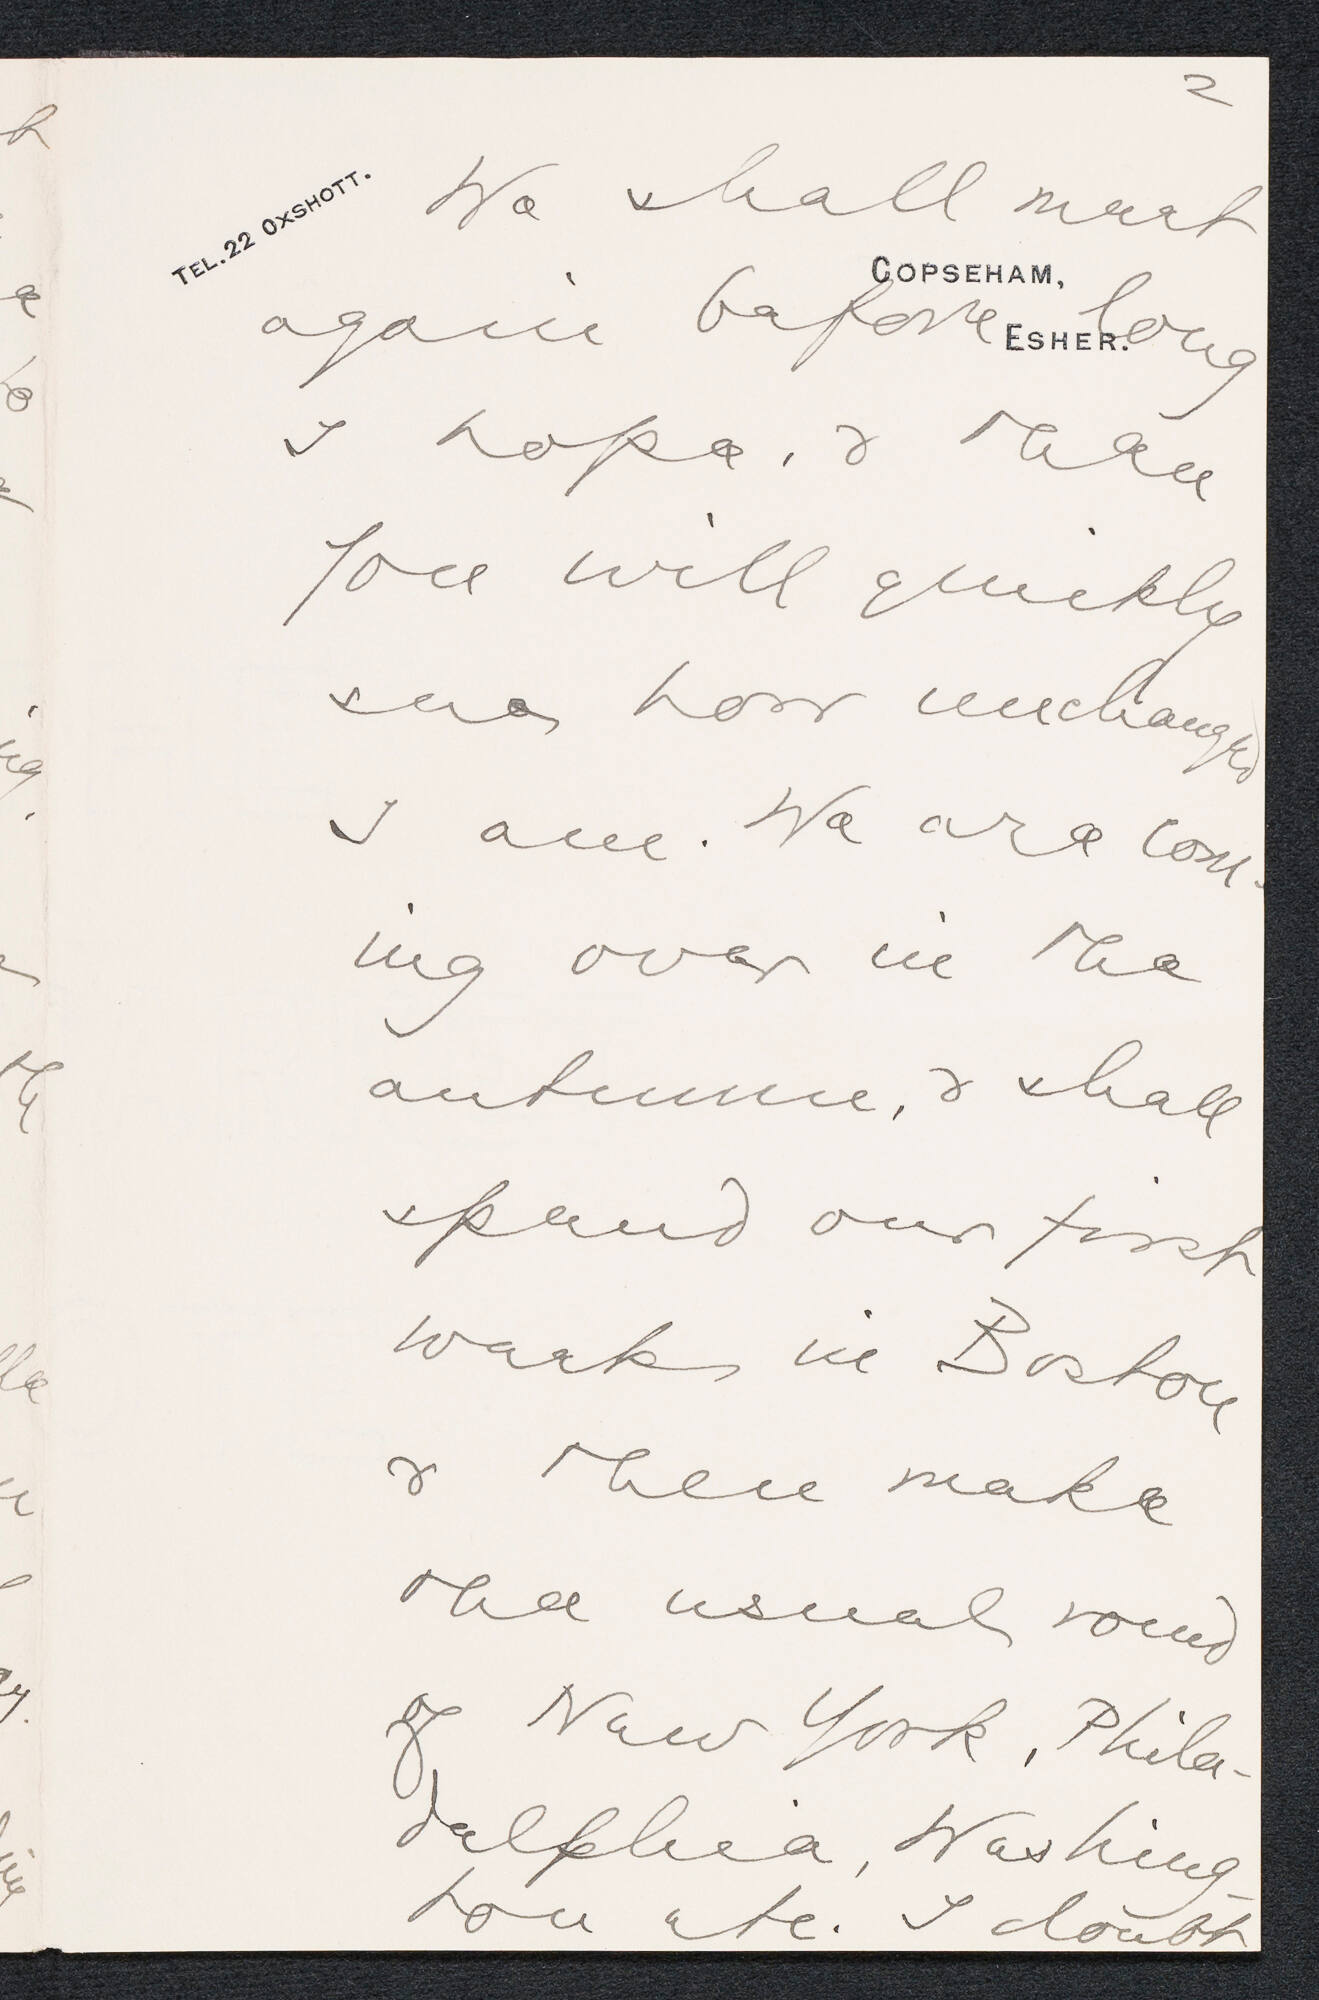 2
TEL. 22 OXSHOTT.
We shall meet
COPSEHAM,
again before long
ESHER.
I hope, & then
you will quickly
see how unchanged
I am. We are com-
ing over in the
autumn, & shall
spend our first
week in Boston
& then make
the usual round
of New York, Phila-
delphia, Washing-
ton etc. I doubt